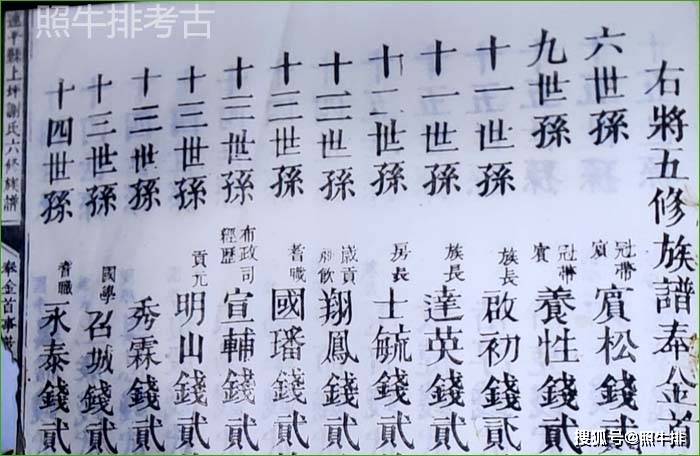 照牛排考古
右將五修族譜奉金首
六世孫 冠帶賓 賓松錢貳
九世孫 冠帶賓 養性錢貳
十一世孫 族長 啟初錢貳
十一世孫 族長 達英錢貳
十二世孫 房長 士毓錢貳
十二世孫 歲貢鄉飲 翔鳳錢貳
十三世孫 耆職 國璠錢貳
十三世孫 布政司經歷 宣輔錢貳
十三世孫 貢元 明山錢貳
十三世孫 秀霖錢貳
十三世孫 國學 召城錢貳
十四世孫 耆職 永泰錢貳
連平縣上坪謝氏六修族譜 奉金首事
搜狐号@照牛排